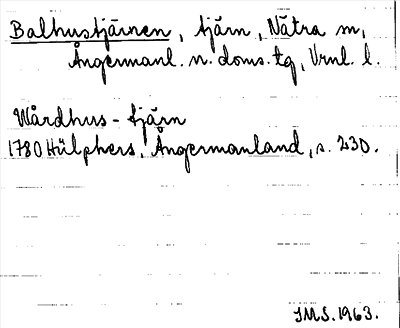 Balhustjärnen, tjärn, Nätra sn,
Ångermanl. n. doms. tg, Vrnl. l.
Wårdhus-tjärn
1780 Hülphers, Ångermanland, s. 230.
IMS. 1963.